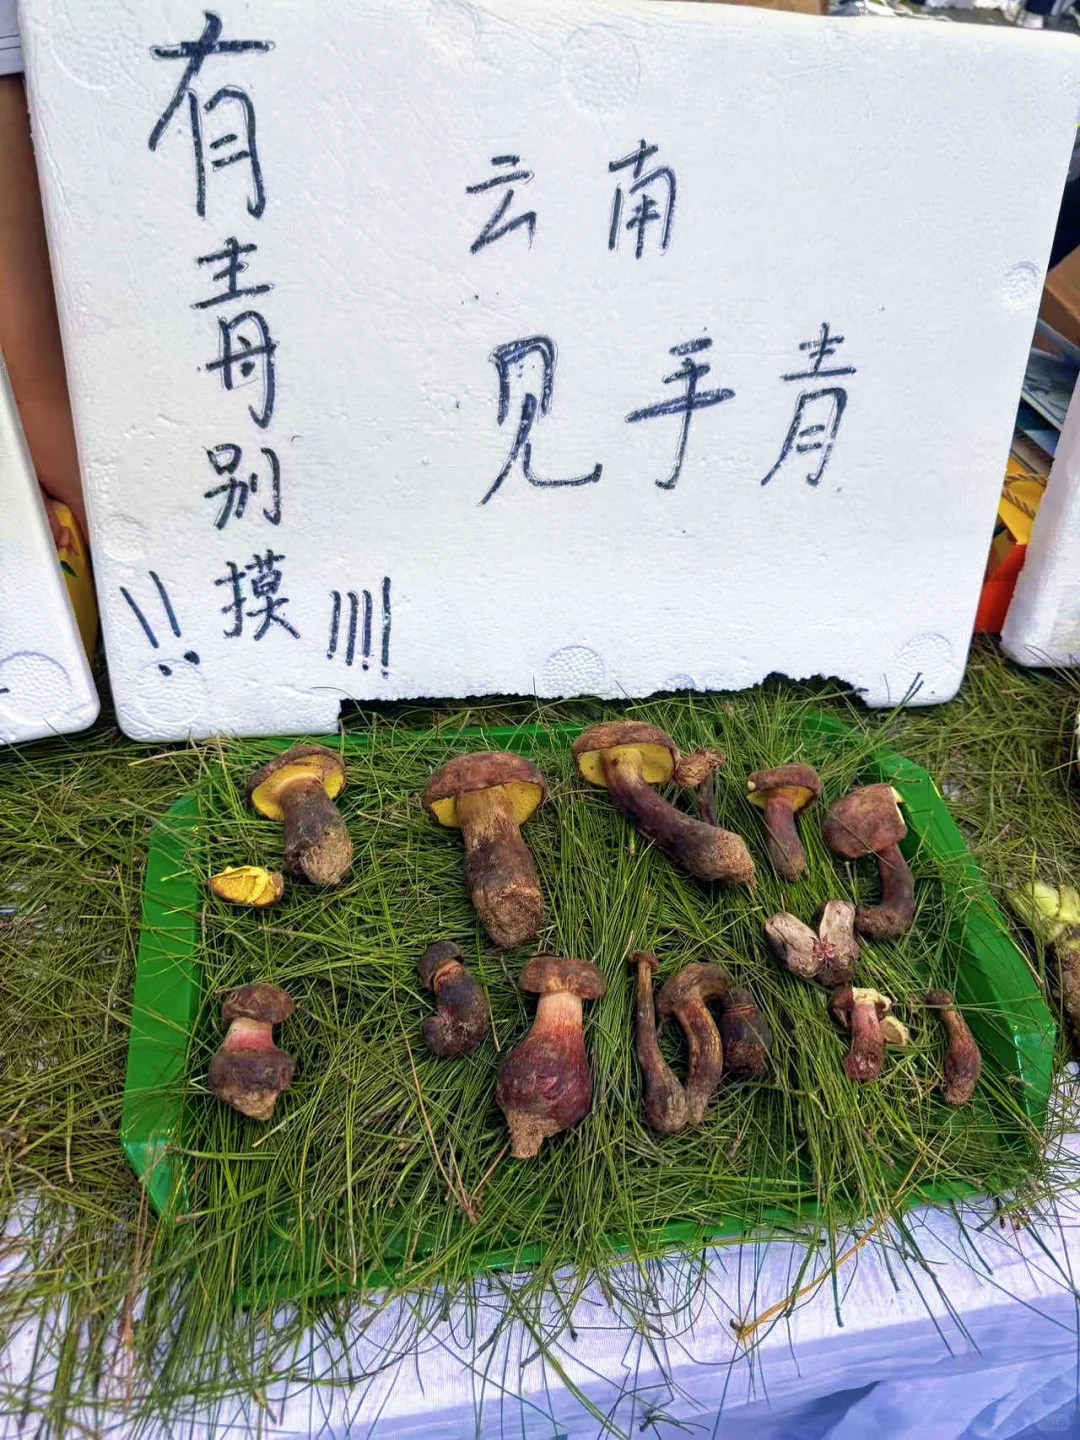 云南
见手青
有毒别摸!!!!!!